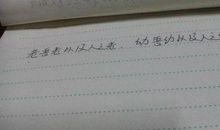 老吾老以及人之老，幼吾幼以及人之